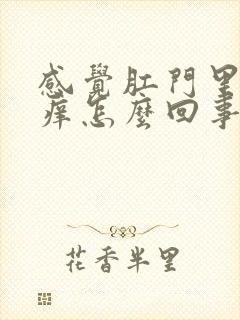 感覺肛門里
痒怎麽回事
花香半里